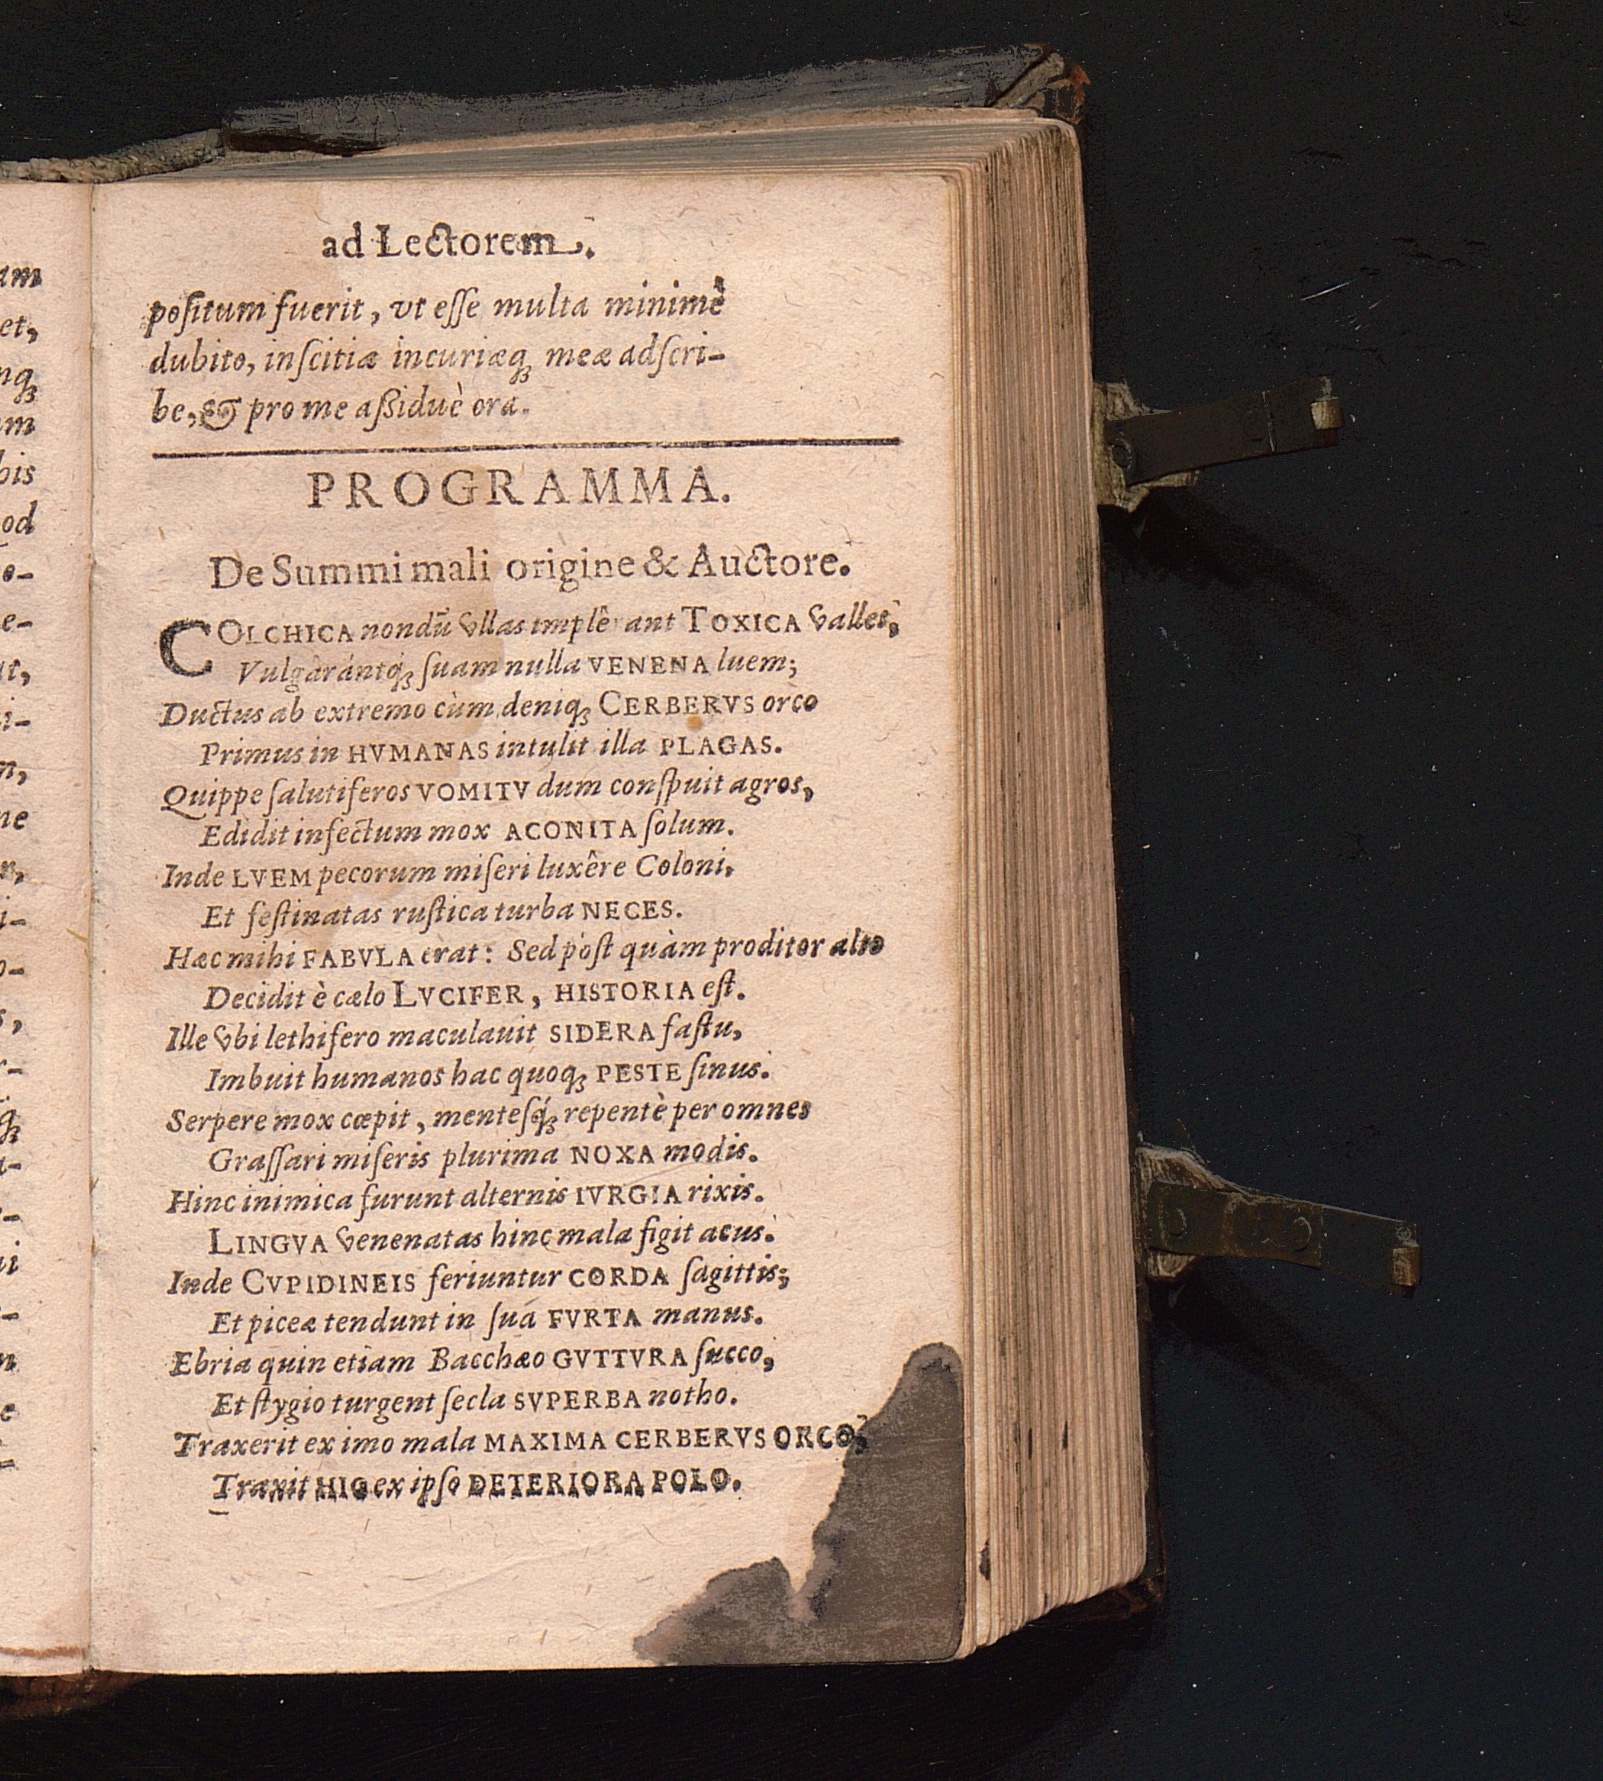 ad Lectorem.
positum fuerit, vt esse multa minimè
dubito, inscitiæ incuriæq; meæ adscri-
be, & pro me assiduè ora.
PROGRAMMA.
De Summi mali origine & Auctore.
COLCHICA nondũ vllas implêrant TOXICA valles,
Vulgârántq; suam nulla VENENA luem;
Ductus ab extremo cùm deniq; CERBERVS orco
Primus in HVMANAS intulit illa PLAGAS.
Quippe salutiferos VOMITV dum conspuit agros,
Edidit infectum mox ACONITA solum.
Inde LVEM pecorum miseri luxêre Coloni,
Et festinatas rustica turba NECES.
Hæc mihi FABVLA erat: Sed póst quàm proditor alto
Decidit è cælo LVCIFER, HISTORIA est.
Ille vbi lethifero maculauit SIDERA fastu,
Imbuit humanos hac quoq; PESTE sinus.
Serpere mox cœpit, mentesq́; repentè per omnes
Grassari miseris plurima NOXA modis.
Hinc inimica furunt alternis IVRGIA rixis.
LINGVA venenatas hinc mala figit acus.
Inde CVPIDINEIS feriuntur CORDA sagittis;
Et piceæ tendunt in sua FVRTA manus.
Ebria quin etiam Bacchæo GVTTVRA succo,
Et stygio turgent secla SVPERBA notho.
Traxerit ex imo mala MAXIMA CERBERVS ORCO,
Traxit HIC ex ipso DETERIORA POLO.
am
et,
nq;
um
bis
od
o-
e-
it,
i-
n,
ne
n,
i-
o-
s,
r-
q;
a-
ui
n
e